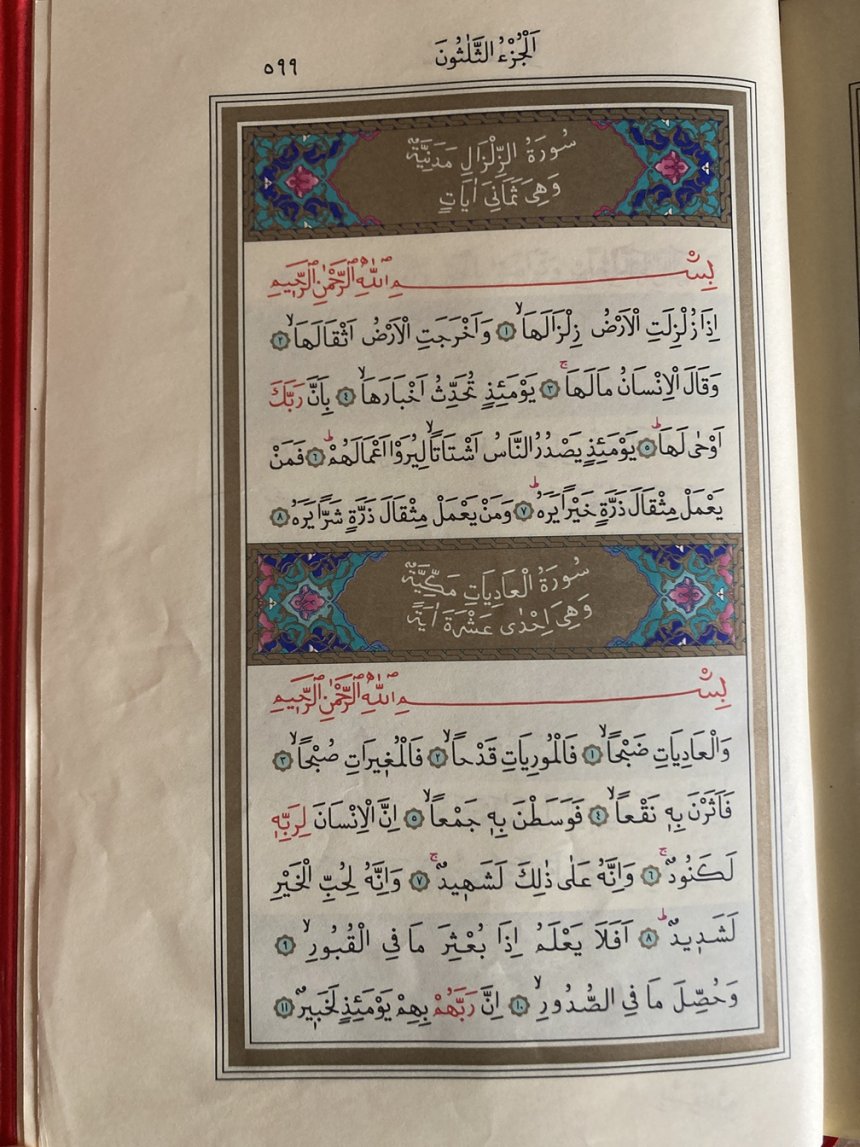 اَلْجُزْءُ الثَّلٰثُونَ
٥٩٩
سُورَةُ الزِّلْزَالِ مَدَنِيَّةٌ
وَهِىَ ثَمَانِىَ اٰيَاتٍ
بِسْمِ اللّٰهِ الرَّحْمٰنِ الرَّحِيمِ
اِذَا زُلْزِلَتِ الْاَرْضُ زِلْزَالَهَاۙ ١ وَاَخْرَجَتِ الْاَرْضُ اَثْقَالَهَاۙ ٢
وَقَالَ الْاِنْسَانُ مَالَهَاۚ ٣ يَوْمَئِذٍ تُحَدِّثُ اَخْبَارَهَاۙ ٤ بِاَنَّ رَبَّكَ
اَوْحٰى لَهَاۜ ٥ يَوْمَئِذٍ يَصْدُرُ النَّاسُ اَشْتَاتًاۙ لِيُرَوْا اَعْمَالَهُمْۜ ٦ فَمَنْ
يَعْمَلْ مِثْقَالَ ذَرَّةٍ خَيْرًا يَرَهُۜ ٧ وَمَنْ يَعْمَلْ مِثْقَالَ ذَرَّةٍ شَرًّا يَرَهُ ٨
سُورَةُ الْعَادِيَاتِ مَكِّيَّةٌ
وَهِىَ اِحْدٰى عَشْرَةَ اٰيَةً
بِسْمِ اللّٰهِ الرَّحْمٰنِ الرَّحِيمِ
وَالْعَادِيَاتِ ضَبْحًاۙ ١ فَالْمُورِيَاتِ قَدْحًاۙ ٢ فَالْمُغِيرَاتِ صُبْحًاۙ ٣
فَاَثَرْنَ بِهٖ نَقْعًاۙ ٤ فَوَسَطْنَ بِهٖ جَمْعًاۙ ٥ اِنَّ الْاِنْسَانَ لِرَبِّهٖ
لَكَنُودٌۚ ٦ وَاِنَّهُ عَلٰى ذٰلِكَ لَشَهٖيدٌۚ ٧ وَاِنَّهُ لِحُبِّ الْخَيْرِ
لَشَدٖيدٌۜ ٨ اَفَلَا يَعْلَمُ اِذَا بُعْثِرَ مَا فِى الْقُبُورِۙ ٩
وَحُصِّلَ مَا فِى الصُّدُورِۙ ١٠ اِنَّ رَبَّهُمْ بِهِمْ يَوْمَئِذٍ لَخَبٖيرٌ ١١